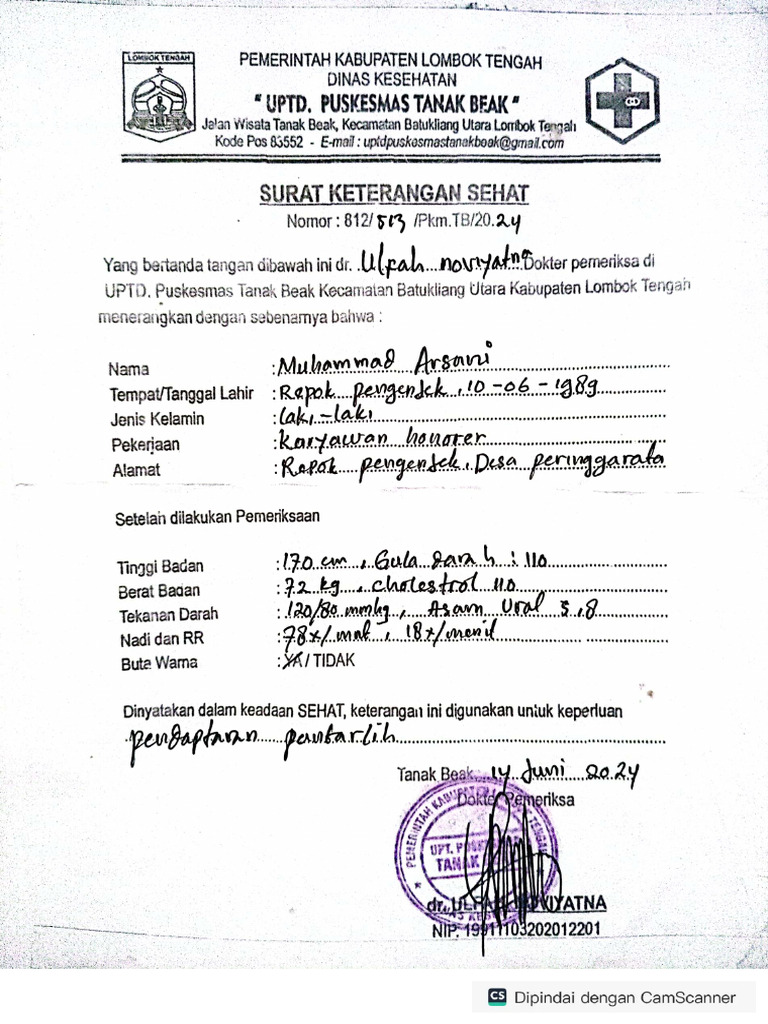 LOMBOK TENGAH
PEMERINTAH KABUPATEN LOMBOK TENGAH
DINAS KESEHATAN
" UPTD. PUSKESMAS TANAK BEAK "
Jalan Wisata Tanak Beak, Kecamatan Batukliang Utara Lombok Tengah
Kode Pos 83552 - E-mail : uptdpuskesmastanakbeak@gmail.com
SURAT KETERANGAN SEHAT
Nomor : 812/ 513 /Pkm.TB/20.24
Yang bertanda tangan dibawah ini dr. Ulfah noviyatna Dokter pemeriksa di
UPTD. Puskesmas Tanak Beak Kecamatan Batukliang Utara Kabupaten Lombok Tengah
menerangkan dengan sebenarnya bahwa :
Nama : Muhammad Arsani
Tempat/Tanggal Lahir : Repok pengentek, 10-06-1989
Jenis Kelamin : laki-laki
Pekerjaan : Karyawan honorer
Alamat : Repok pengentek, Desa peringgarata
Setelah dilakukan Pemeriksaan
Tinggi Badan : 170 cm , Gula darah : 110
Berat Badan : 72 kg , cholestrol 110
Tekanan Darah : 120/80 mmhg , Asam Urat 5,8
Nadi dan RR : 78x/mnt , 18x/menit
Buta Warna : YA / TIDAK
Dinyatakan dalam keadaan SEHAT, keterangan ini digunakan untuk keperluan
pendaptaran pantarlih
Tanak Beak, 14 Juni 2024
Dokter Pemeriksa
PEMERINTAH KABUPATEN LOMBOK TENGAH
UPT. PUSKESMAS
TANAK
dr. ULFAH NOVIYATNA
NIP. 19911103202012201
CS Dipindai dengan CamScanner